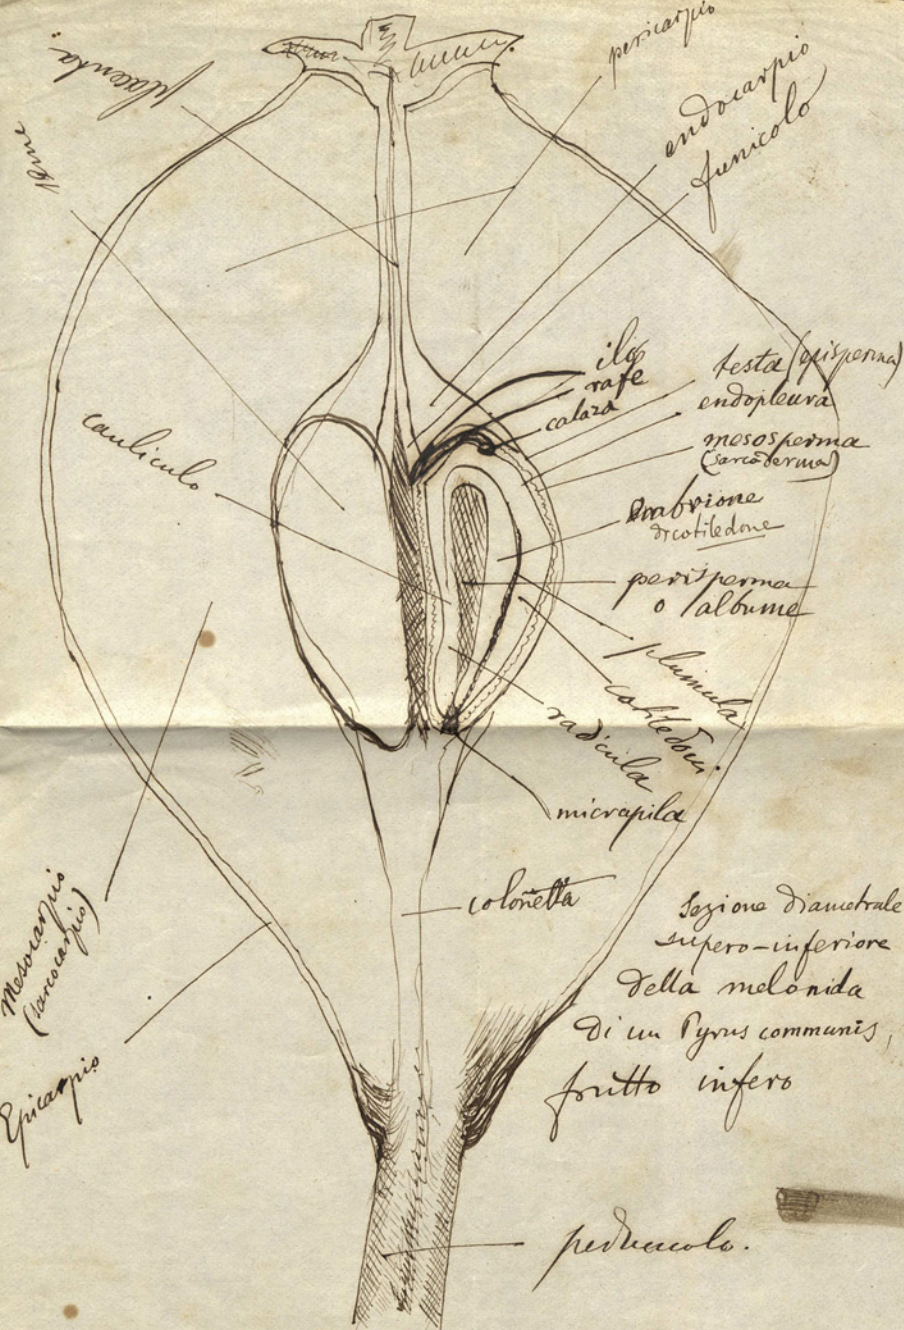 placenta.
seme
pericarpio
endocarpio
funicolo
ilo
rafe
calaza
testa (episperma)
endopleura
mesosperma
(sarcoderma)
cauliculo
Embrione
dicotiledone
perisperma
o albume
plumula
cotiledoni.
radicula
micropila
colonetta
Mesocarpio
(sarcocarpio)
Epicarpio
Sezione diametrale
supero-inferiore
della melonida
di un Pyrus communis,
frutto infero
peduncolo.